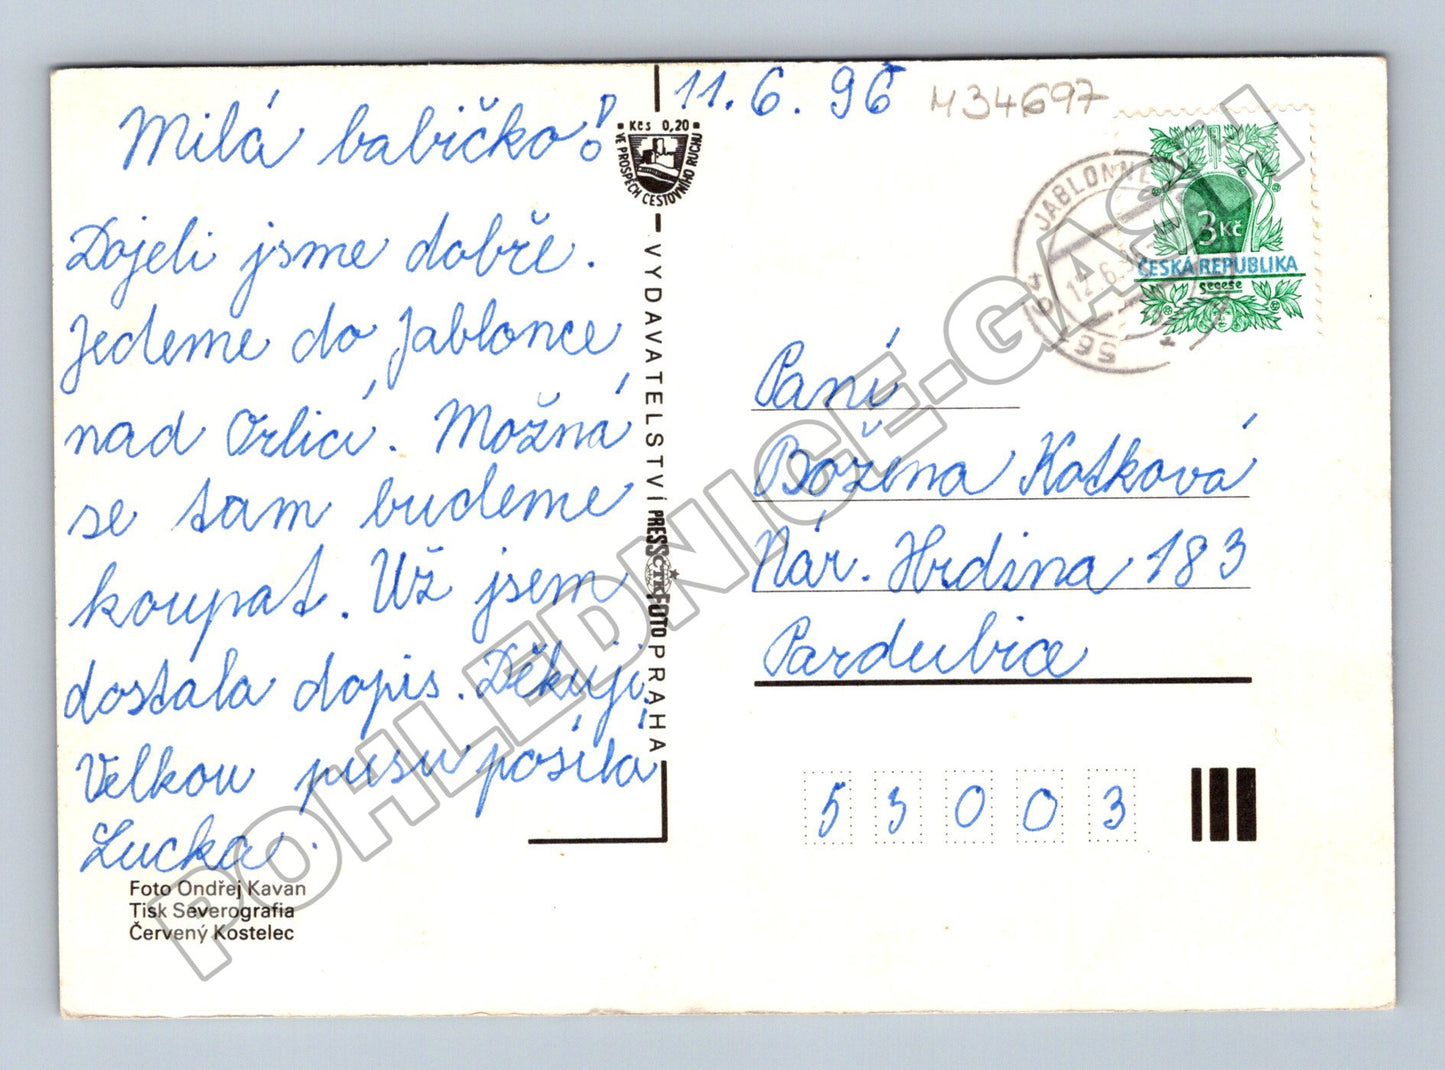 11.6.96
M34697
Milá babičko!
Dojeli jsme dobře.
Jedeme do Jablonce
nad Orlicí. Možná
se tam budeme
koupat. Už jsem
dostala dopis. Děkuji,
Velkou pusu posílá
Lucka.
Foto Ondřej Kavan
Tisk Severografia
Červený Kostelec
Kčs 0,20
VE PROSPĚCH CESTOVNÍHO RUCHU
VYDAVATELSTVÍ PRESSFOTO PRAHA
ČTK
JABLONNÉ
12.6.
3 Kč
ČESKÁ REPUBLIKA
secese
Paní
Božena Kotková
Nár. Hrdina 183
Pardubice
53003
POHLEDNICE-GASH